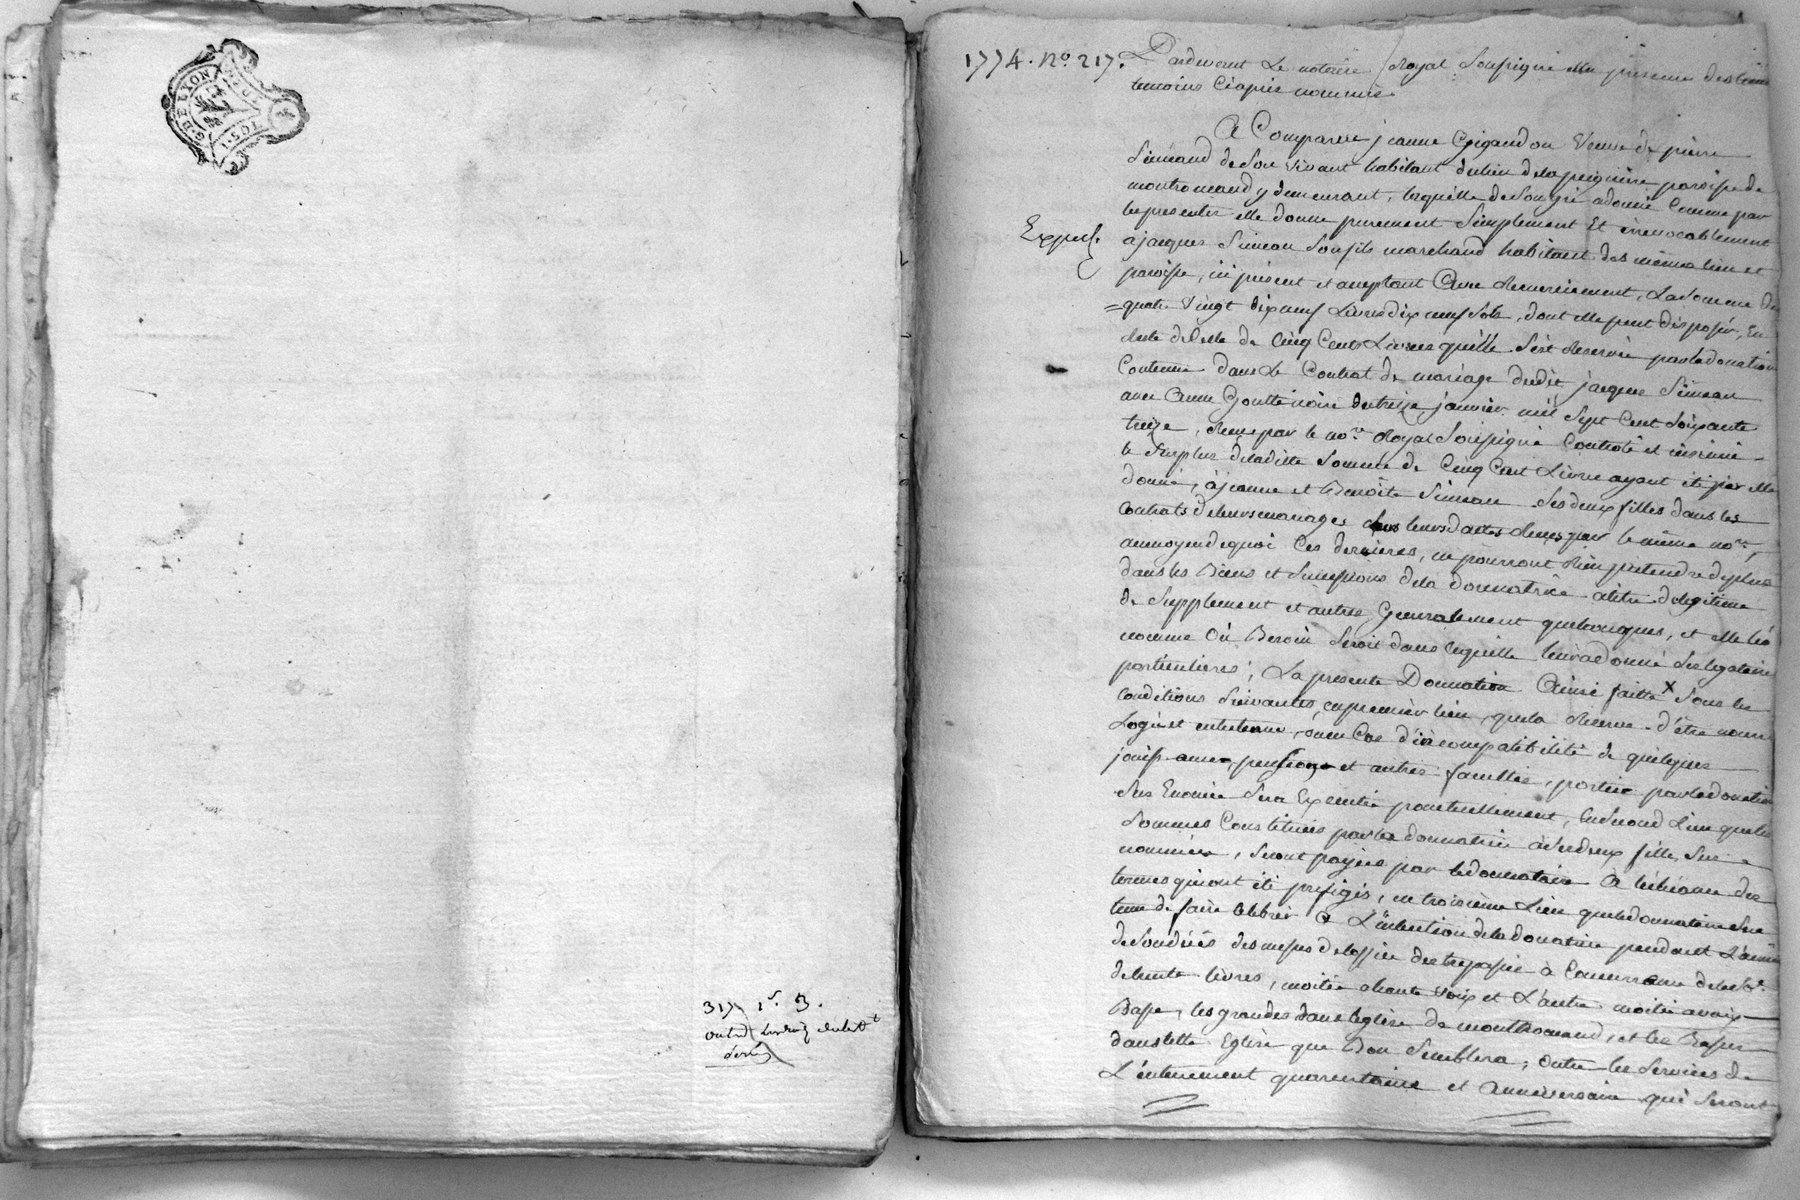 G. DE LYON
1774. No. 217. Pardevant Le notaire Royal Soussigné En presence des
temoins Cy après nommés
A Comparue jeanne Grigaudon Veuve de pierre
Siméand de Son Vivant habitant du lieu dela peigniere paroisse de
montromand y demeurant, laquelle de Son gré a donné Comme par
les presentes elle donne purement Simplement Et irrévocablement
Exped.
a jacques Simean Son fils marchand habitant des mêmes lieu et
paroisse, ici présent et acceptant Avec Remerciement, La Somme De
quatre Vingt dix neuf Livres dix neuf Sols, dont elle peut disposer, En
Reste de Celle de Cinq Cents Livres qu'elle S'est Reservée par la donation
Contenue dans Le Contrat de mariage dudit jacques Simean
avec Anne Goutte noire du treize janvier mil Sept Cent Soixante
treize, Reçu par le nore Royal Soussigné Controlé et insinué
le Surplus de ladite Somme de Cinq Cent Livres ayant été par elle
donné, à jeanne et Benoite Simean Ses deux filles dans les
Contrats de leurs mariages leurs dattes Reçus par le même nore,
au moyen de quoi Ces dernieres, ne pourront Rien pretendre de plus
dans les Biens et Successions dela donnatrice a titre de legitime
de Supplement et autres Generalement quelconques, et elle les
nomme Où Besoin Seroit dans laquelle leur a donné Ses legataires
particulieres; La presente Donnation Ainsi faitte X Sous les
Conditions Suivantes, en premier lieu, que la Reserve d'être nourrie
Logée et entretenue, ou en Cas d'incompatibilité de quelques
jouissances, pensions et autres facultés, portée par la donation
Sus Enoncée Sera Executée ponctuellement, En Second Lieu que les
Sommes Constituées par la donnatrice à Ses deux filles Sus
nommées, Seront payées par le donnataire A l'échéance des
termes qui ont été prefigés, en troisième Lieu que le donnataire Sera
tenu de faire Celebrer A L'intention dela donatrice pendant L'année
de Son décès des messes de l'office des trepassés à Concurrence de la Se.
de trente livres, moitié a haute voix et L'autre moitié a voix
Basse, les grandes dans l'eglise de montromand, et les Basses
dans telle Eglise que Bon Semblera; Outre les Services de
L'enterrement quarantaine et Anniversaire qui Seront